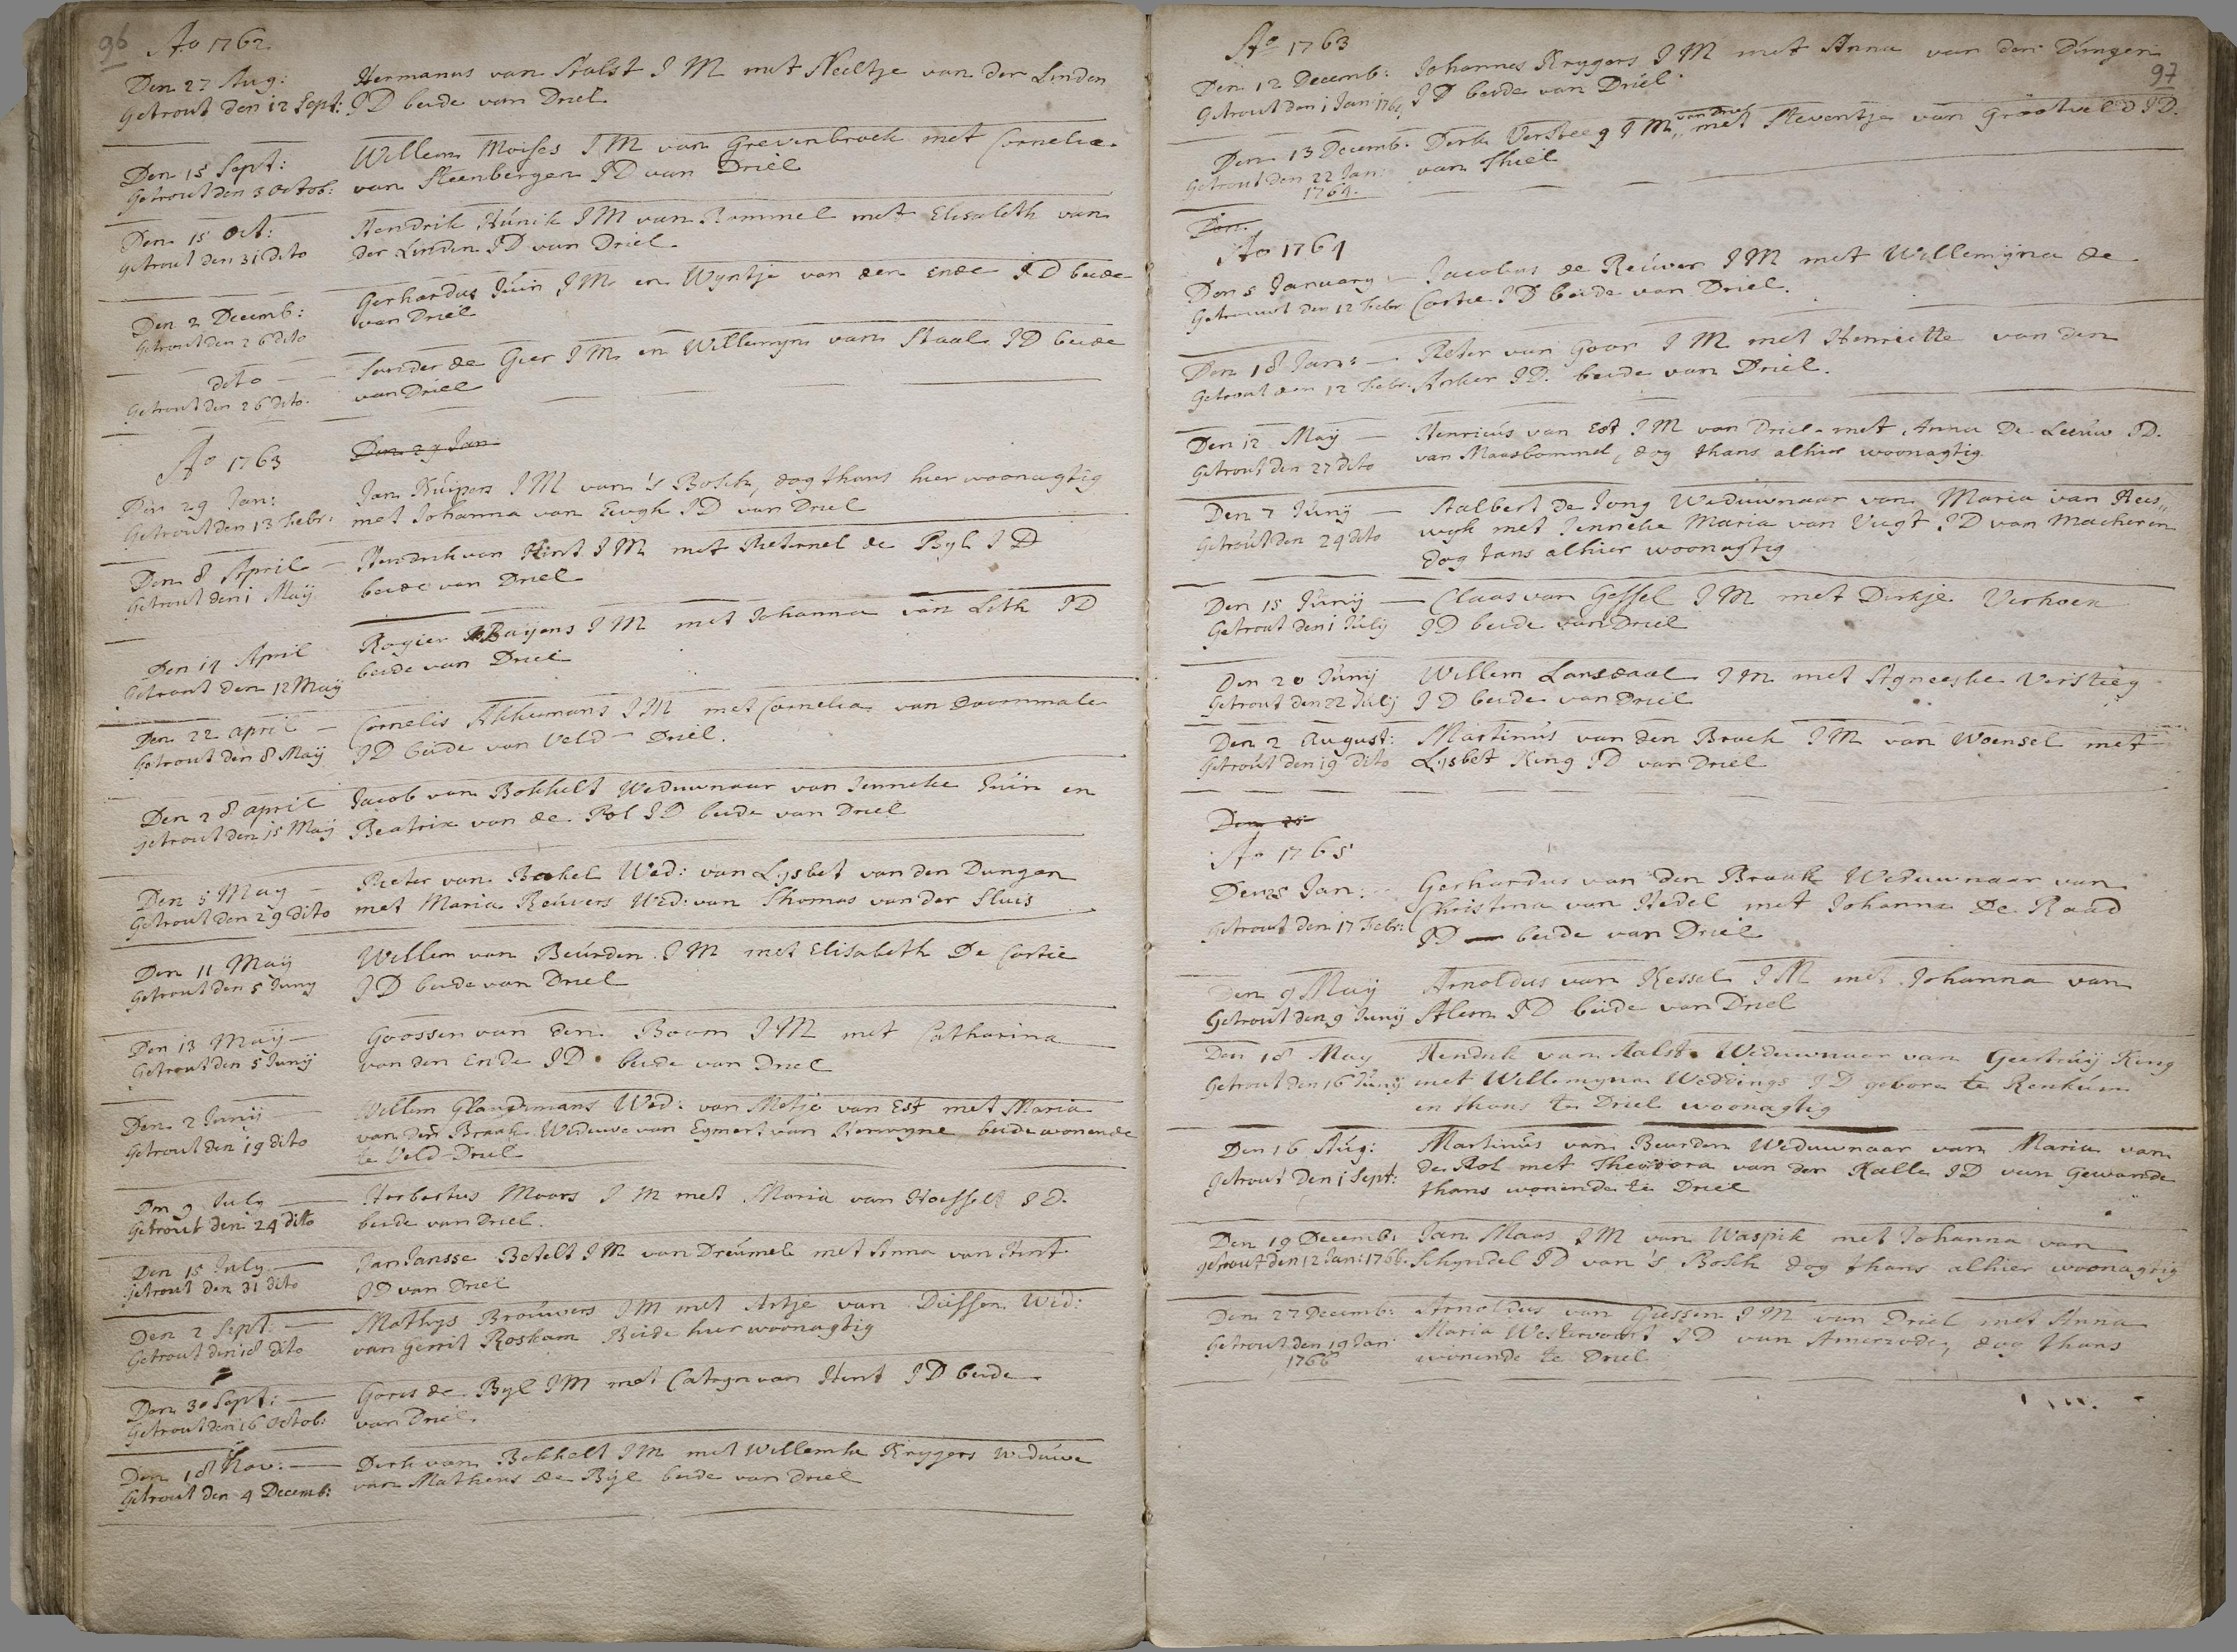 96
Ao 1762
Den 27 Aug: Hermanus van Aalst J M met Neeltje van der Linden
Getrout den 12 Sept: JD beide van Driel
Den 15 Sept: Willem Moises JM van Grevenbroek met Cornelia
Getrout den 3 Octob: van Steenbergen JD van Driel
Den 15 Oct: Hendrik Húnik JM van Bommel met Elisabeth van
Getrout den 31 dito der Linden JD van Driel
Den 2 Decemb: Gerhardus Júin JM en Wyntje van den Ende JD beide
Getrout den 26 dito van Driel
dito Sander de Gier JM en Willemyn van Staal JD beide
Getrout den 26 dito. van Driel
Ao 1763 Den 29 Jan
Den 29 Jan: Jan Kúipers JM van 's Bosch, dog thans hier woonagtig
Getrout den 13 Febr: met Johanna van Eevgh JD van Driel
Den 8 April Hendrik van Hint JM met Peternel de Byl JD
Getrout den 1 May beide van Driel
Den 14 April Rogier Baijens JM met Johanna van Lith JD
Getrout den 12 Maÿ beide van Driel
Den 22 april Cornelis Akkermans JM met Cornelia van Doornmale
Getrout den 8 May JD beide van Veld-Driel.
Den 28 april Jacob van Bokhelt Weduwnaar van Jenneke Júin en
getrout den 15 Maÿ Beatrix van de Pol JD beide van Driel
Den 5 May Pieter van Bokel Wed: van Lysbet van den Dungen
Getrout den 29 dito met Maria Reúvers Wed: van Thomas van der Sluis
Den 11 Maÿ Willem van Beúrden JM met Elisabeth De Cortie
Getrout den 5 Juny JD beide van Driel
Den 13 Maÿ Goossen van den Boom JM met Catharina
Getrout den 5 Junÿ van den Ende JD beide van Driel
Den 2 Junÿ Willem Glaudemans Wed: van Metje van Est met Maria
Getrout den 19 dito van den Braak Weduwe van Eymert van Herwyne beide wonende
te Veld-Driel
Den 9 July Herbertus Moors JM met Maria van Hoesselt JD.
Getrout den 24 dito beide van Driel.
Den 15 July Jan Jansse Betelt JM van Dreúmel met Anna van Hint
getrout den 31 dito JD van Driel
Den 2 Sept. Mathys Broúwers JM met Artje van Diessen Wed:
Getrout den 18 dito van Gerrit Roskam Beide hier woonagtig
Den 30 Sept: Goris de Byl JM met Catryn van Hint JD beide
Getrout den 16 Octob: van Driel.
Den 18 Nov: Dirk van Bokhelt JM met Willemke Krygers weduwe
Getrout den 4 Decemb: van Matheus de Bijl beide van Driel
97
Ao 1763
Den 12 Decemb: Johannes Krygers JM met Anna van den Dúngen
Getrout den 1 Jan 1764 JD beide van Driel
Den 13 Decemb. Derk Versteeg JM van Driel met Steventje van Grootveld JD.
Getrout den 22 Jan: van Thiel
1764.
Den
Ao 1764
Den 5 January Jacobus de Reúver JM met Willemÿna de
Getrouwt den 12 Febr Cortie JD beide van Driel.
Den 18 Jan: Peter van Goor JM met Henriette van den
Getrout den 12 Febr. Anker JD. beide van Driel.
Den 12 Maÿ Henricús van Est JM van Driel met Anna De Leeúw JD.
Getrout den 27 dito van Maasbommel, dog thans alhier woonagtig
Den 7 Júny Aalbert de Jong Wedúwnaar van Maria van Rees,,
Getroút den 24 dito wyk met Jenneke Maria van Vugt JD van Macharen
dog tans alhier woonagtig
Den 15 Júnÿ Claas van Gessel JM met Dirkje Verhoek
Getrout den 1 Júlÿ JD beide van Driel
Den 20 Júnÿ Willem Lansdaal JM met Agneeske Versteeg
Getrout den 22 Júlÿ JD beide van Driel
Den 2 August: Martinús van den Broek JM van Woensel met
Getroút den 19 dito Lysbet King JD van Driel
Den 25
Ao 1765
Den 28 Jan: Gerhardus van den Braak Weduwnaar van
getrout den 17 Febr: Christina van Hedel met Johanna De Raad
JD beide van Driel
Den 9 Maÿ Arnoldus van Kessel JM met Johanna van
Getrout den 9 Junÿ Alem JD beide van Driel
Den 18 May Hendrik van Aalst Weduwnaar van Geertruij King
Getrout den 16 Junÿ met Willemyna Weddings JD geboren te Renkúm
en thans te Driel woonagtig
Den 16 Aúg: Martinús van Beurden Weduwnaar van Maria van
getrout Den 1 Sept: de Pol met Theodora van der Kalle JD van Gewande
thans wonende te Driel
Den 19 Decemb: Jan Maas JM van Waspik met Johanna van
getrout den 12 Jan: 1766. Schyndel JD van 's Bosch dog thans alhier woonagtig
Den 27 Decemb: Arnoldus van Giessen JM van Driel met Anna
Getrout den 19 Jan: Maria Westervoort JD van Amerzode, dog thans
1766 wonende te Driel